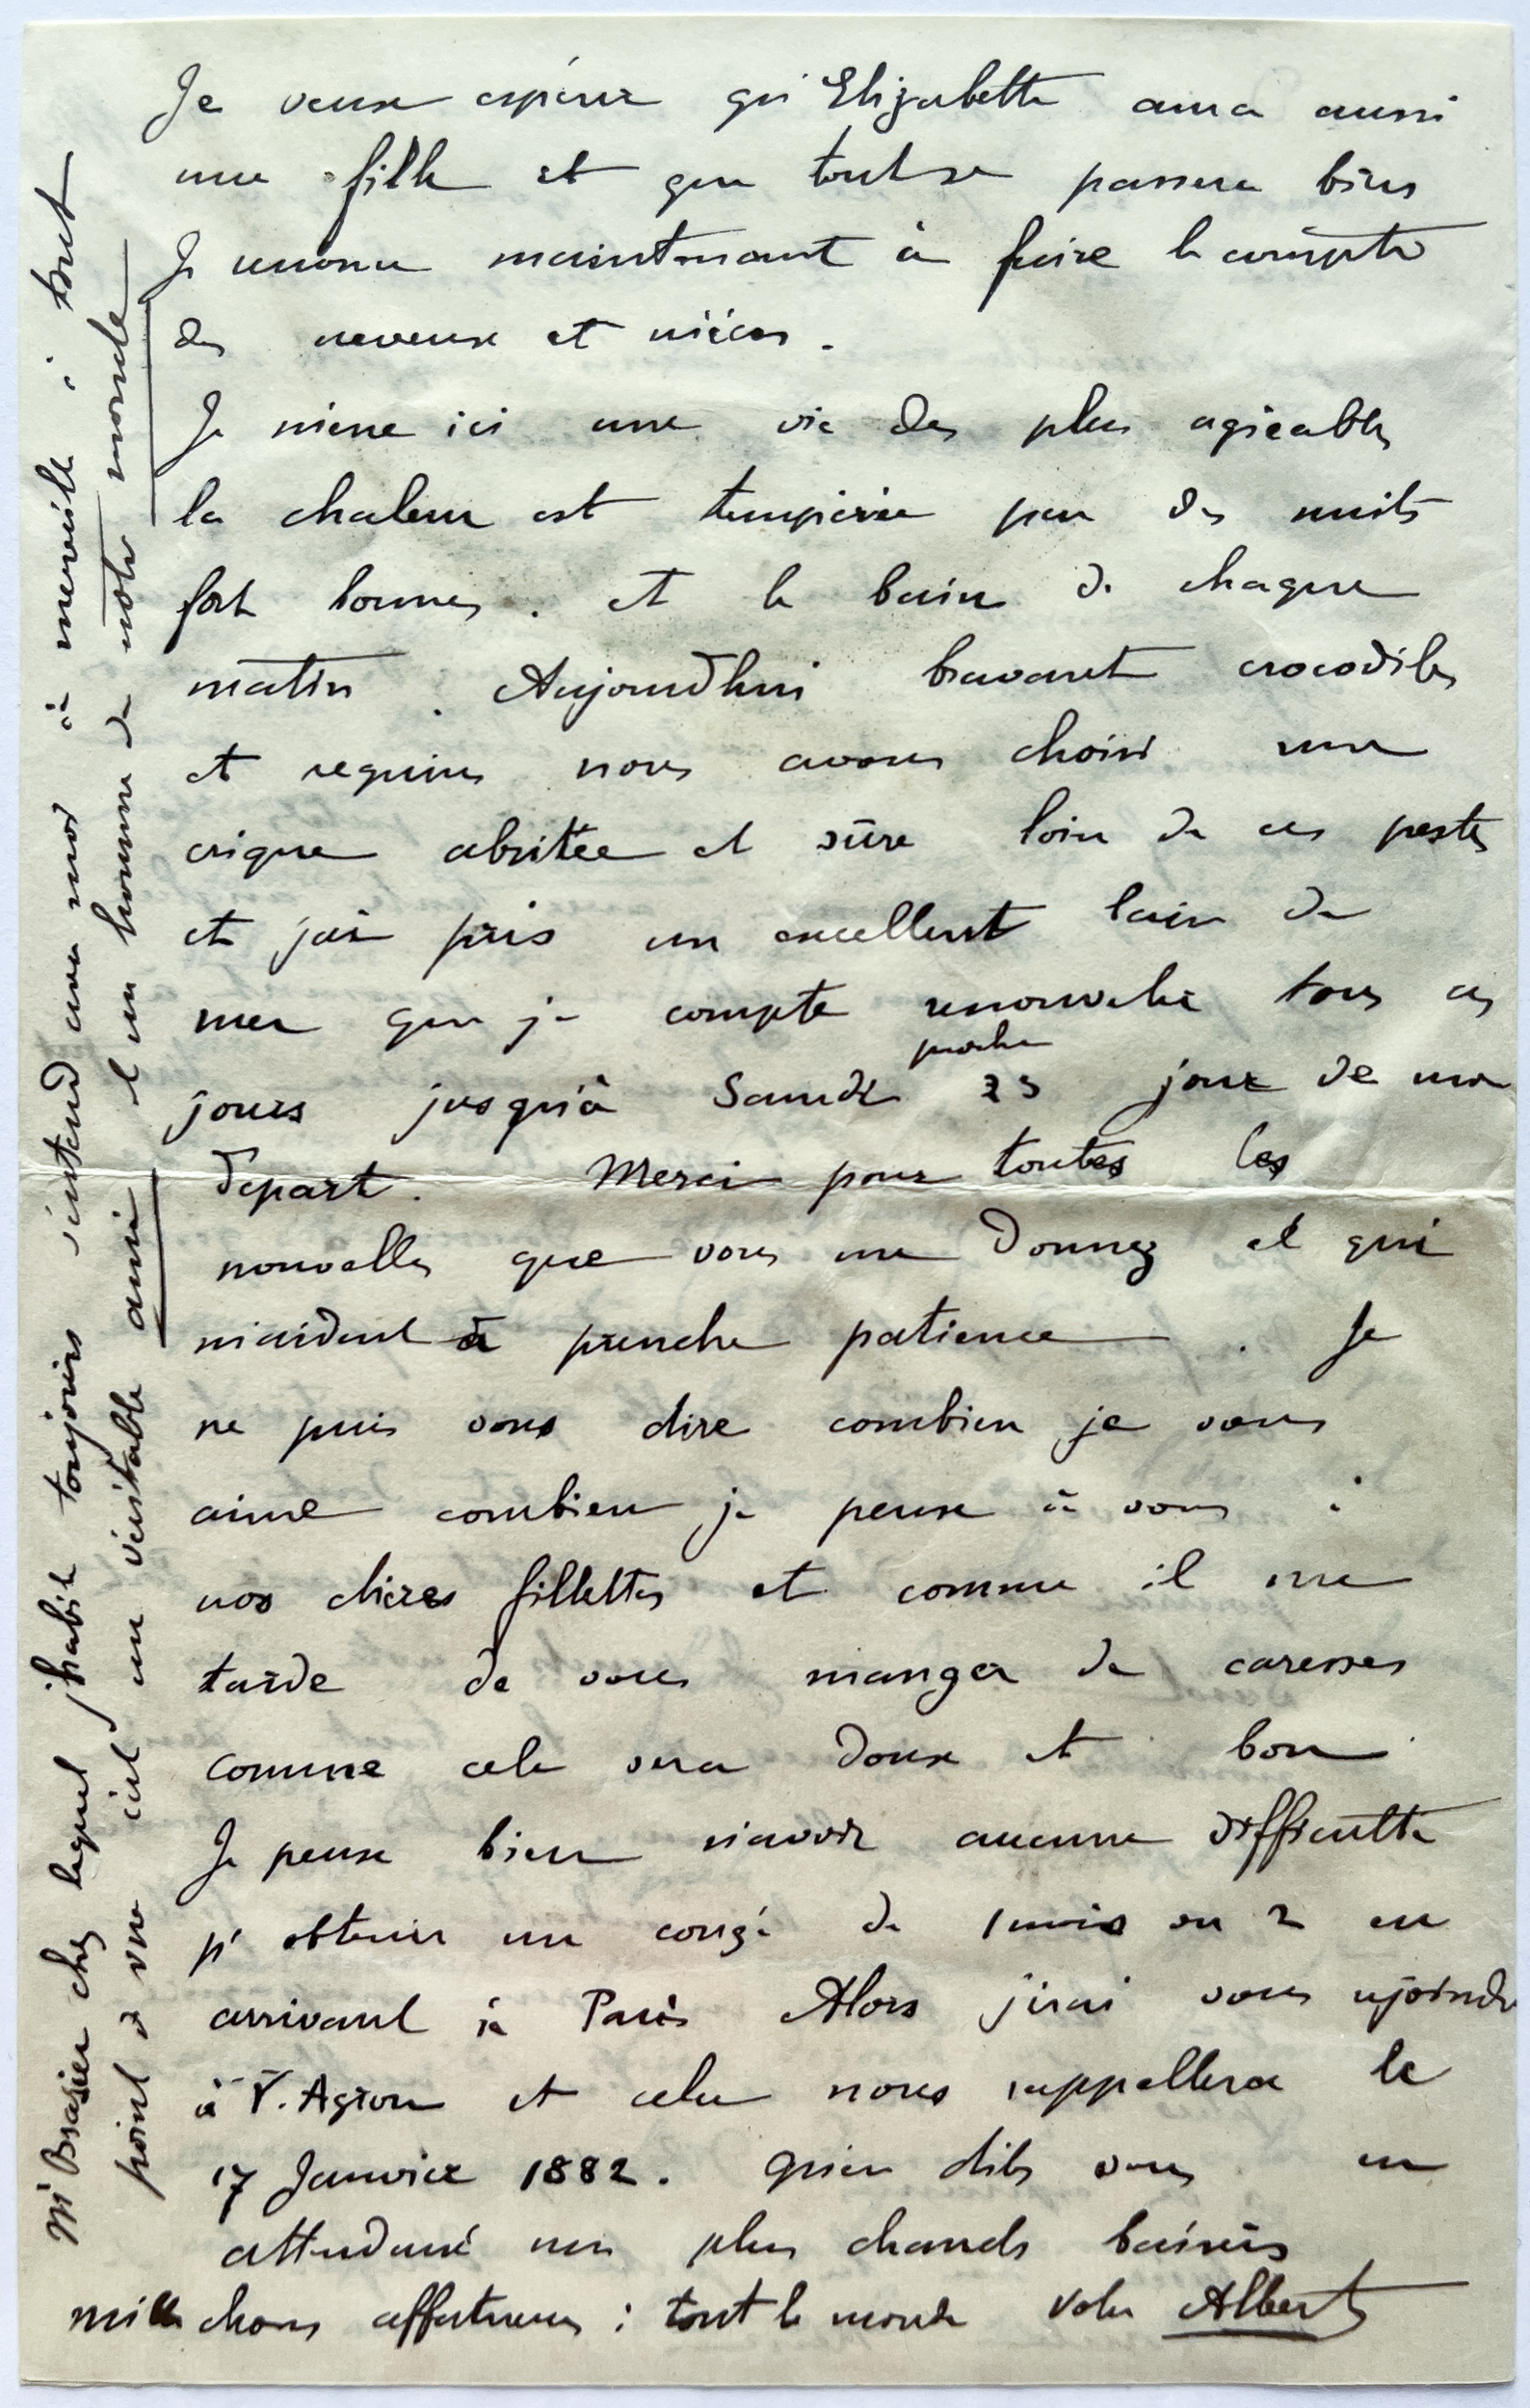 Je veux espérer qu'Elizabeth aura aussi
une fille et que tout se passera bien
Je renonce maintenant à faire le compte
des neveux et nièces.
Je mène ici une vie des plus agréables
la chaleur est tempérée par des nuits
fort bonnes. et le bain de chaque
matin. Aujourdhui bravant crocodiles
et requins nous avons choisi une
crique abritée et sûre loin de ces pestes
et j'ai pris un excellent bain de
mer que je compte renouveler tous ces
prochain
jours jusqu'à Samedi 23 jour de mon
départ. Merci pour toutes les
nouvelles que vous me donnez et qui
m'aident à prendre patience. Je
ne puis vous dire combien je vous
aime combien je pense à vous à
nos chères fillettes et comme il me
tarde de vous manger de caresses
comme cela sera doux et bon
Je pense bien n'avoir aucune difficulté
pr obtenir un congé de 1 mois ou 2 en
arrivant à Paris Alors j'irai vous rejoindre
à V. Agron et cela nous rappellera le
17 Janvier 1882. Qu'en dites vous en
attendant mes plus chauds baisers
mille choses affectueuses à tout le monde votre Albert
Mr Brasier chez lequel j'habite toujours s'entend avec moi à merveille à tout
point d vue c'est un véritable ami et un homme de notre monde